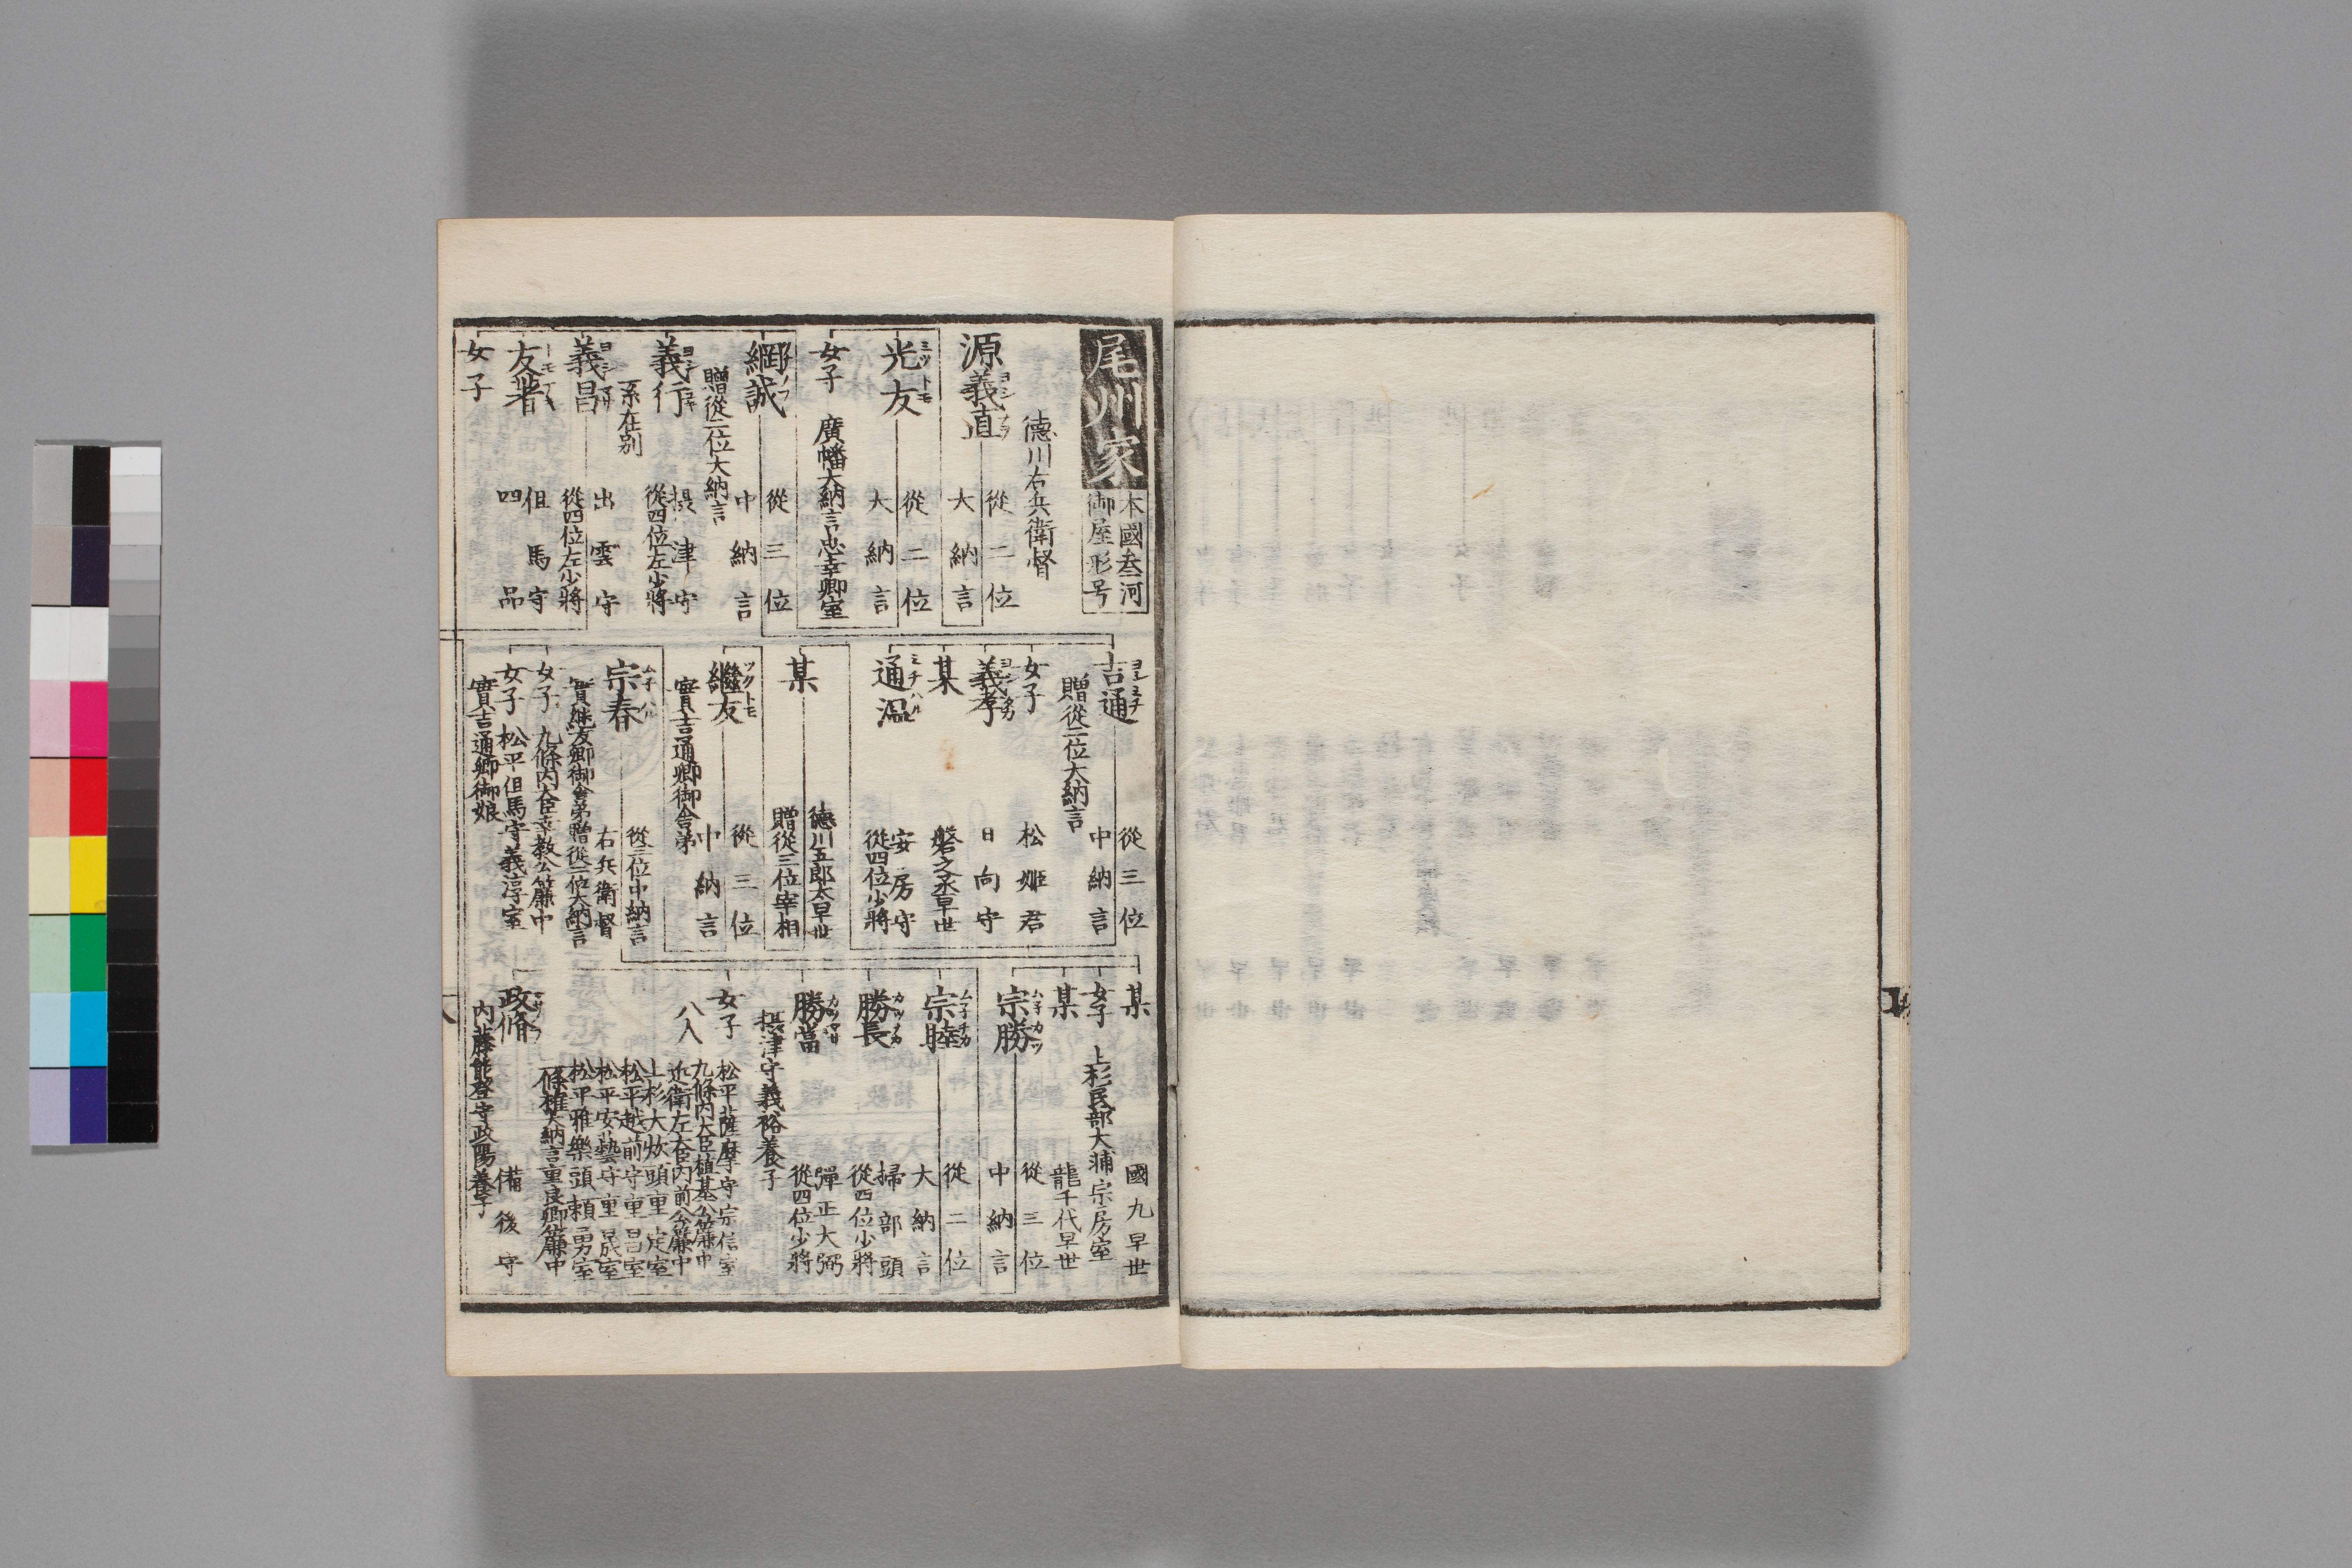 尾州家
本國叁河
御屋形号
德川右兵衛督
源義直
從二位
大納言
光友
ミツトモ
從二位
大納言
女子
廣幡大納言忠幸卿室
綱誠
從三位
中納言
贈從二位大納言
義行
系在別
摂津守
從四位左少將
義昌
出雲守
從四位左少將
友著
但馬守
四品
女子
吉通
從三位
中納言
贈從二位大納言
女子
松姬君
義孝
日向守
某
磐之丞早世
通温
ミチハル
安房守
從四位少將
某
德川五郎太早世
贈從三位宰相
繼友
ツクトモ
從三位
中納言
實吉通卿御舎弟
宗春
ムネハル
從三位中納言
右兵衛督
實継友卿御舎弟贈從二位大納言
女子
九條内大臣幸教公簾中
女子
松平但馬守義淳室
實吉通卿御娘
某
國九早世
女子
上杉民部大輔宗房室
某
龍千代早世
宗勝
ムネカツ
從三位
中納言
宗睦
ムネチカ
從二位
大納言
勝長
カツナカ
掃部頭
從四位少將
勝當
弾正大弼
從四位少將
摂津守義裕養子
女子
八人
松平薩摩守宗信室
九條内大臣植基公簾中
近衛左大臣内前公簾中
上杉大炊頭重定室
松平越前守重昌室
松平安藝守重晟室
松平雅樂頭頼勇室
一條権大納言重良卿簾中
政脩
備後守
内藤能登守政陽養子